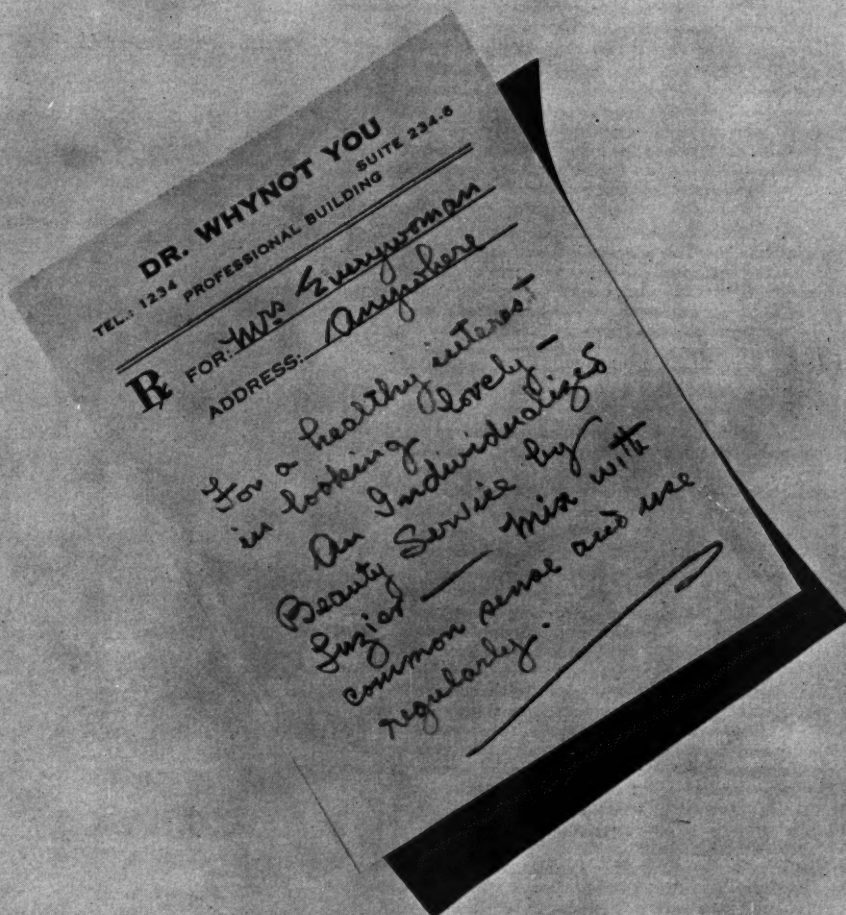 DR. WHYNOT YOU
TEL.: 1234 PROFESSIONAL BUILDING SUITE 234-6
℞ FOR: Mrs Everywoman
ADDRESS: Anywhere
For a healthy interest
in looking lovely —
An Individualized
Beauty Service by
Luzier — Mix with
common sense and use
regularly.